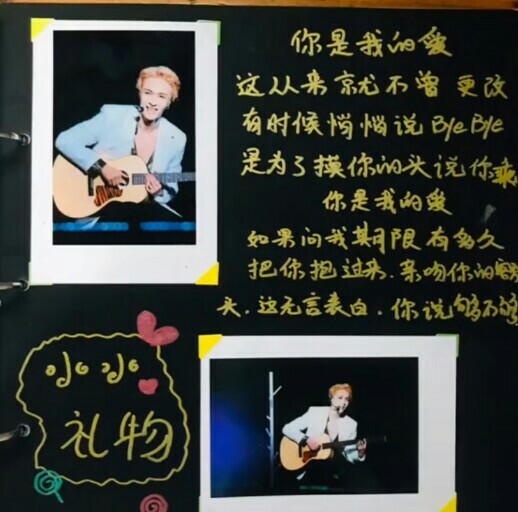 你是我的爱
这从来就不曾更改
有时候悄悄说ByeBye
是为了摸你的头说你乖
你是我的爱
如果问我期限有多久
把你抱过来.亲吻你的额
头.这无言表白.你说够不够
小小
礼物